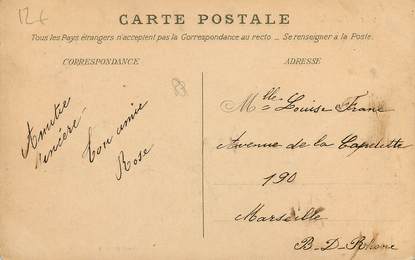 12€
CARTE POSTALE
Tous les Pays étrangers n'acceptent pas la Correspondance au recto _ Se renseigner à la Poste.
CORRESPONDANCE
ADRESSE
Amitié
sincère
Ton amie
Rose
Mlle Louise Franc
Avenue de la Capelette
190
Marseille
B-D-Rhône